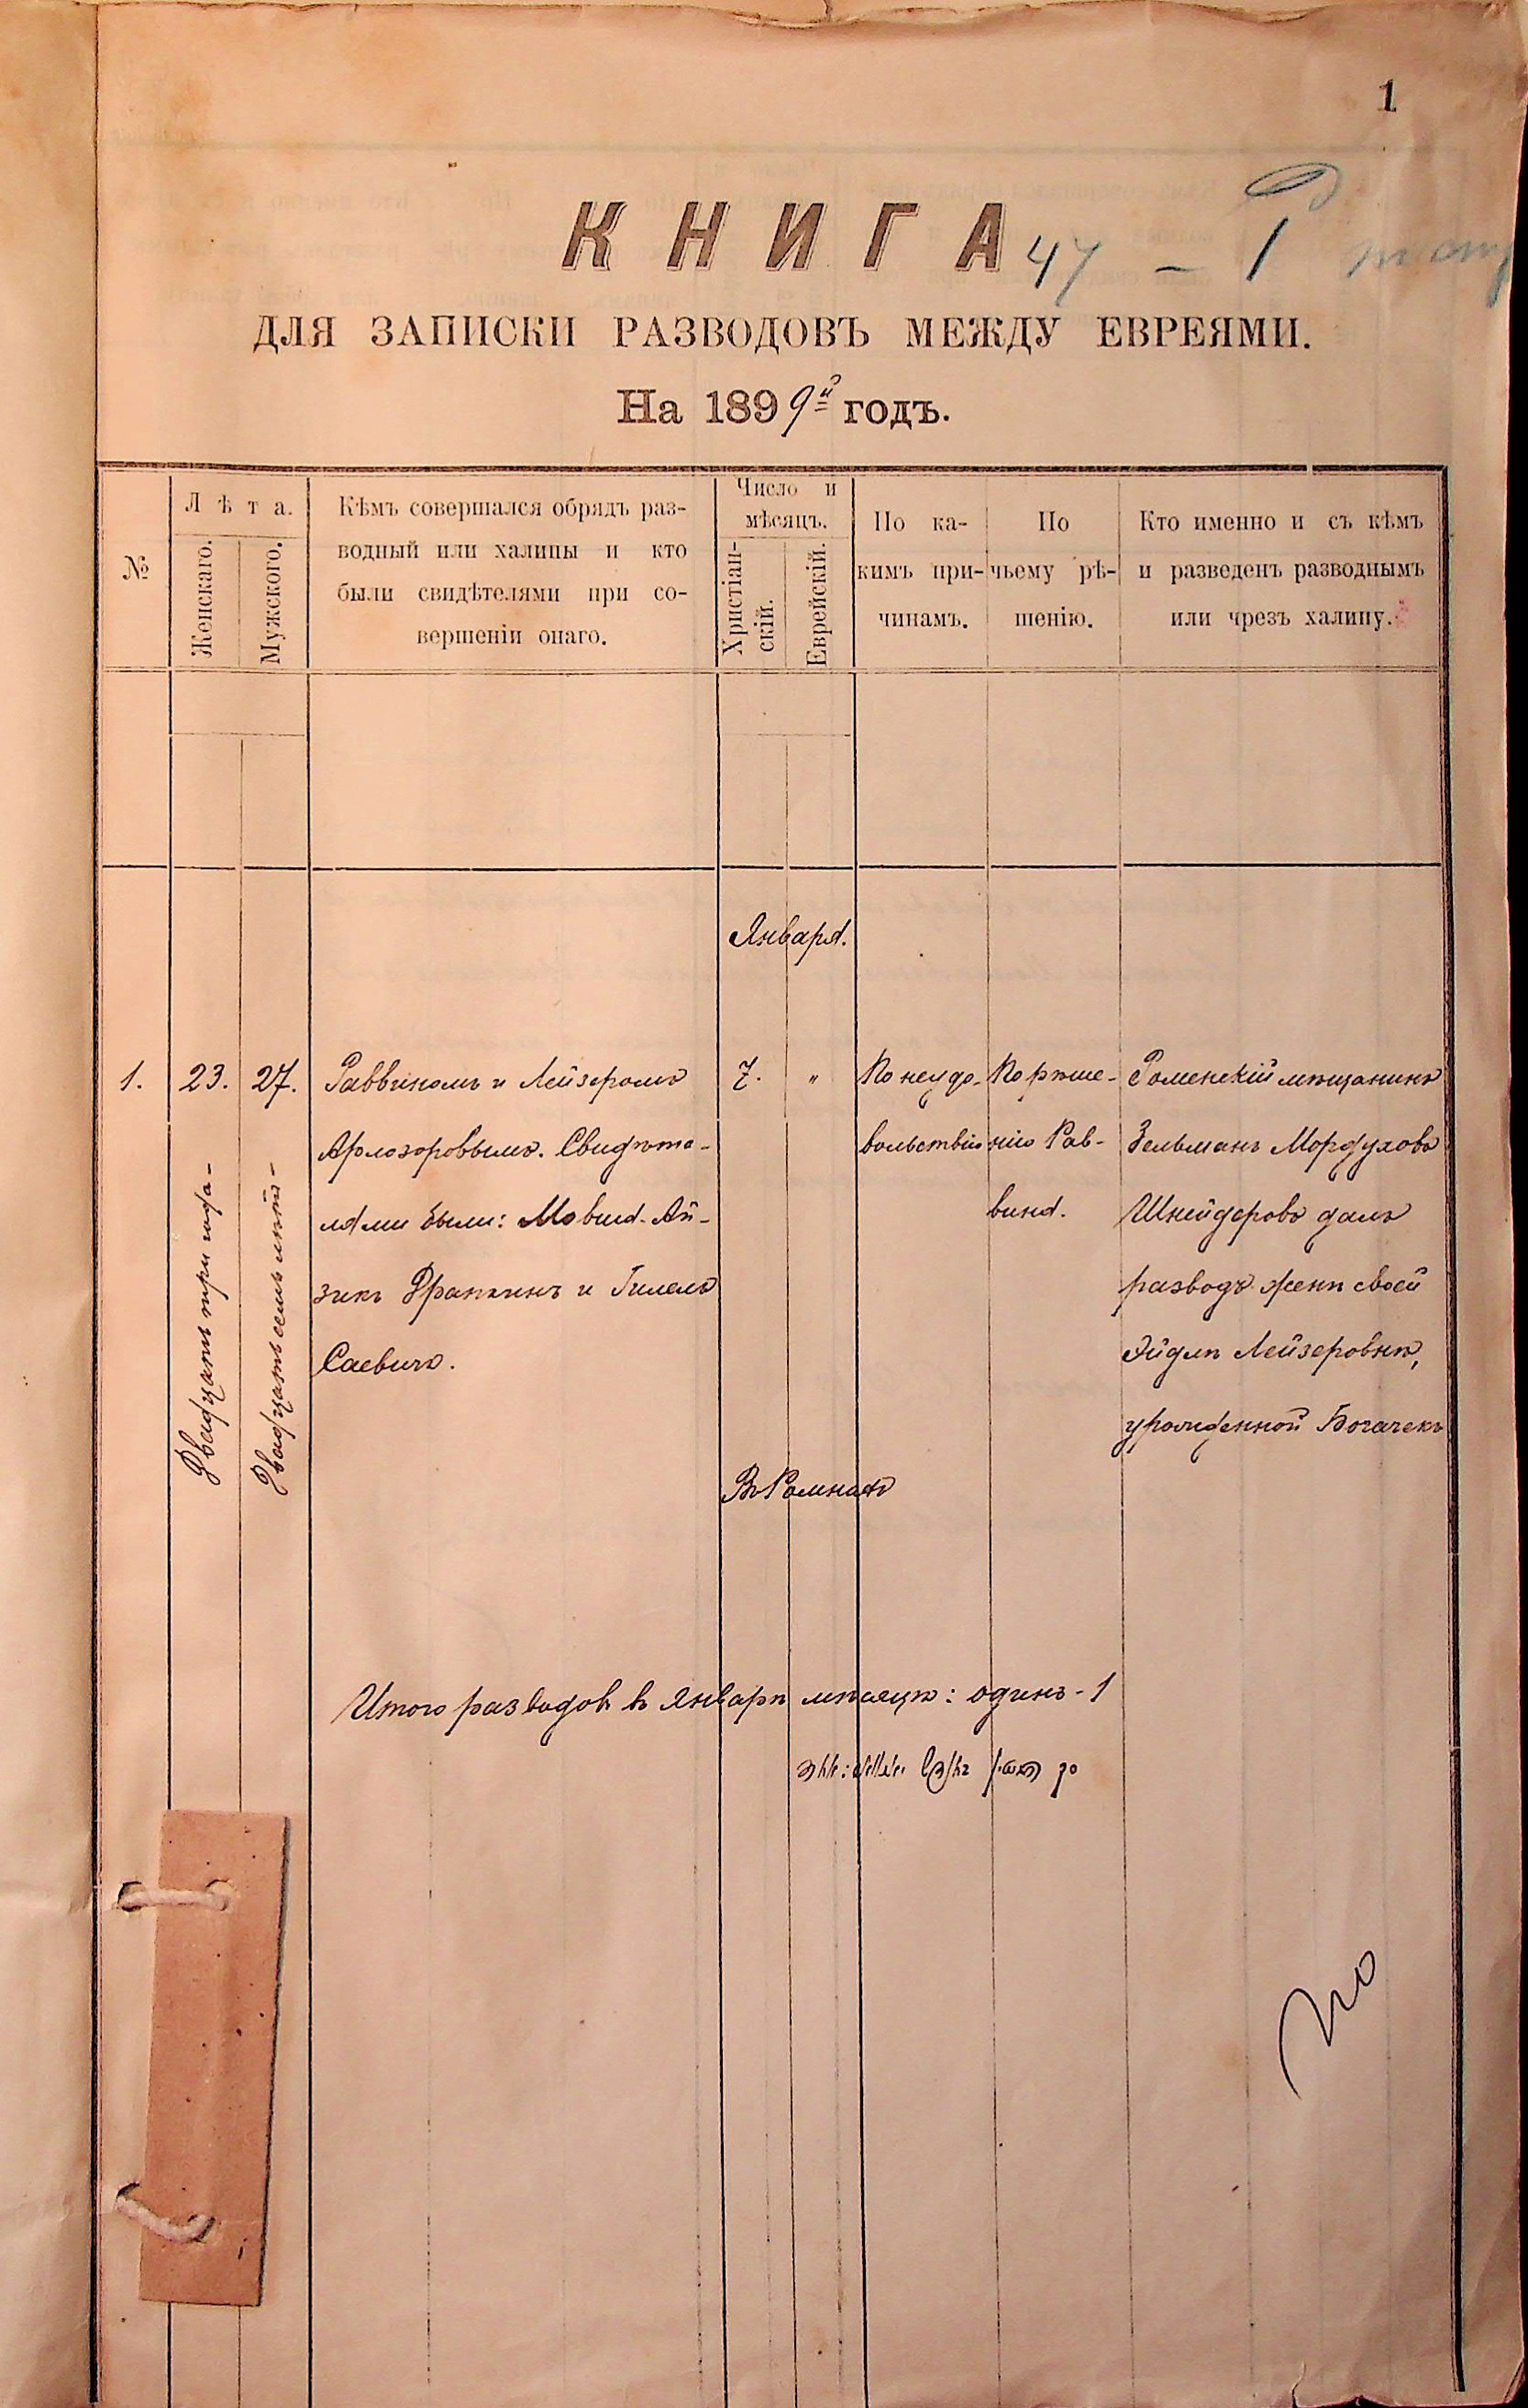 1
КНИГА
47 - 1
ДЛЯ ЗАПИСКИ РАЗВОДОВЪ МЕЖДУ ЕВРЕЯМИ.
На 1899й годъ.
№
Лѣта.
Женскаго.
Мужского.
Кѣмъ совершался обрядъ раз-
водный или халицы и кто
были свидѣтелями при со-
вершеніи онаго.
Число и
мѣсяцъ.
Христіан-
скій.
Еврейскій.
По ка-
кимъ при-
чинамъ.
По
чьему рѣ-
шенію.
Кто именно и съ кѣмъ
и разведенъ разводнымъ
или чрезъ халицу.
Января.
1.
23.
Двадцать три года-
27.
Двадцать семь лѣтъ-
Раввиномъ и Лейзеромъ
Арлозоровымъ. Свидѣте-
лями были: Мовша-Ай-
зикъ Драпкинъ и Гилель
Саевичъ.
7.
"
По неудо-
вольствію
По рѣше-
нію Рав-
вина.
Роменскій мѣщанинъ
Зельманъ Мордуховъ
Шнейдеровъ далъ
разводъ женѣ своей
Эйдлѣ Лейзеровнѣ,
урожденной Богачекъ
Въ Ромнахъ
Итого разводовъ въ Январѣ мѣсяцѣ: одинъ-1